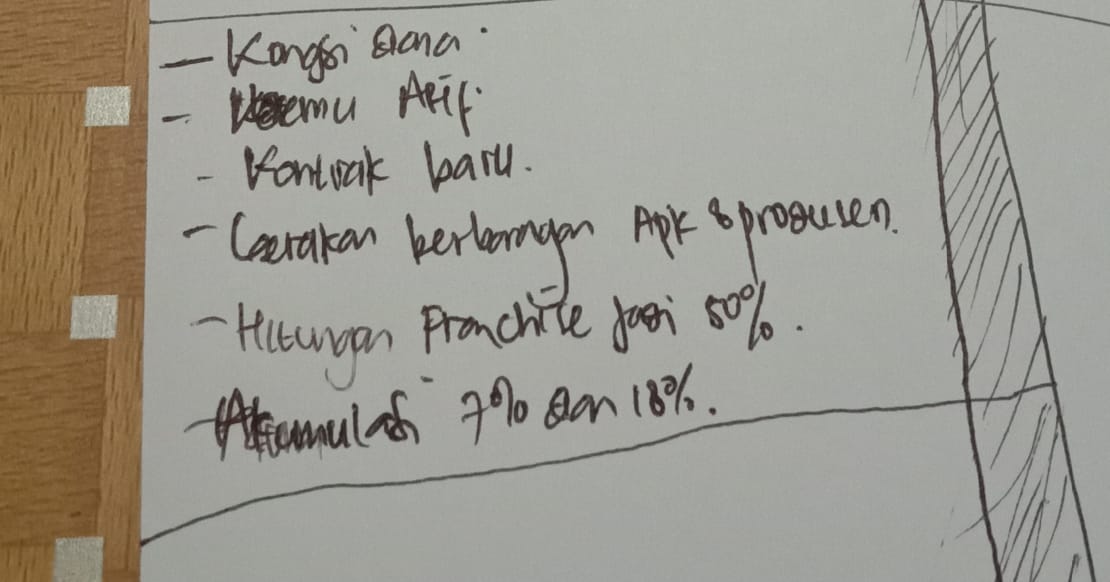 - Kongsi dana.
- Ketemu Arif.
- Kontrak baru.
- Gerakan berbarengan Apk & produsen.
- Hitungan Franchise jadi 50%.
- Akumulasi 7% dan 18%.